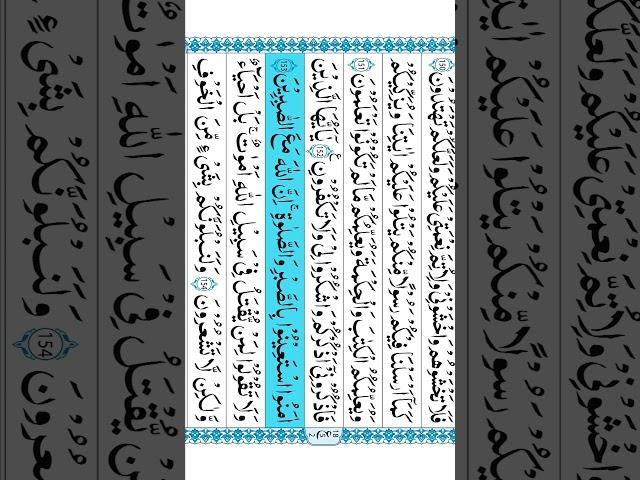 فَلَا تَخْشَوْهُمْ وَاخْشَوْنِيْ وَلِاُتِمَّ نِعْمَتِيْ عَلَيْكُمْ وَلَعَلَّكُمْ تَهْتَدُوْنَ 150
كَمَآ اَرْسَلْنَا فِيْكُمْ رَسُوْلًا مِّنْكُمْ يَتْلُوْا عَلَيْكُمْ اٰيٰتِنَا وَيُزَكِّيْكُمْ
وَيُعَلِّمُكُمُ الْكِتٰبَ وَالْحِكْمَةَ وَيُعَلِّمُكُمْ مَّا لَمْ تَكُوْنُوْا تَعْلَمُوْنَ 151
فَاذْكُرُوْنِيْٓ اَذْكُرْكُمْ وَاشْكُرُوْا لِيْ وَلَا تَكْفُرُوْنِ 152 يٰٓاَيُّهَا الَّذِيْنَ
اٰمَنُوا اسْتَعِيْنُوْا بِالصَّبْرِ وَالصَّلٰوةِ ۚ اِنَّ اللّٰهَ مَعَ الصّٰبِرِيْنَ 153
وَلَا تَقُوْلُوْا لِمَنْ يُّقْتَلُ فِيْ سَبِيْلِ اللّٰهِ اَمْوَاتٌ ۚ بَلْ اَحْيَآءٌ
وَّلٰكِنْ لَّا تَشْعُرُوْنَ 154 وَلَنَبْلُوَنَّكُمْ بِشَيْءٍ مِّنَ الْخَوْفِ